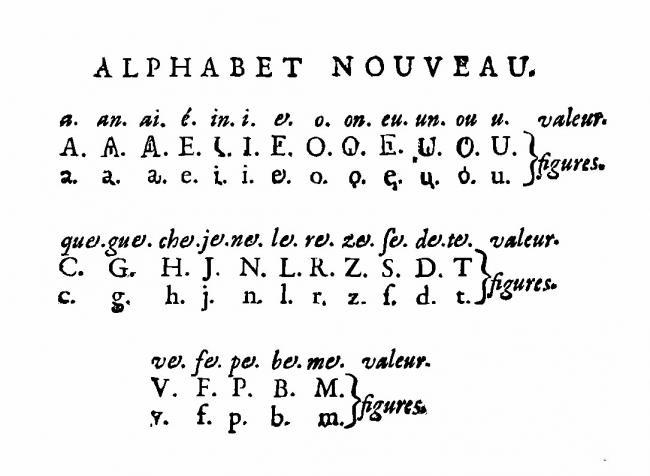 ALPHABET NOUVEAU.
a. an. ai. é. in. i. e. o. on. eu. un. ou u. valeur.
A. A. A. E. I. I. E. O. O. E. U. O. U.
figures.
a. a. a. e. i. i. e. o. o. e. u. o. u.
que. gue. che. je. ne. le. re. ze. ſe. de. te. valeur.
C. G. H. J. N. L. R. Z. S. D. T
figures.
c. g. h. j. n. l. r. z. ſ. d. t.
ve. fe. pe. be. me. valeur.
V. F. P. B. M.
figures.
v. f. p. b. m.